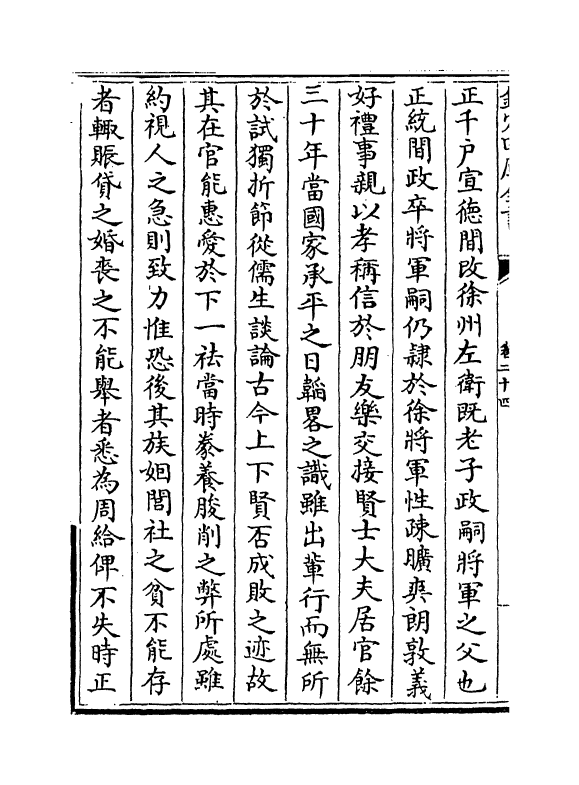 正千户宣徳間改徐州左衛既老子政嗣將軍之父也
正統間政卒將軍嗣仍隸於徐將軍性疎曠爽朗敦義
好禮事親以孝稱信於朋友樂交接賢士大夫居官餘
三十年當國家承平之日韜畧之識雖出輩行而無所
於試獨折節從儒生談論古今上下賢否成敗之迹故
其在官能惠愛於下一祛當時豢養朘削之弊所處雖
約視人之急則致力惟恐後其族姻閭社之貧不能存
者輙賑貸之婚喪之不能舉者悉為周給俾不失時正
卷二十四